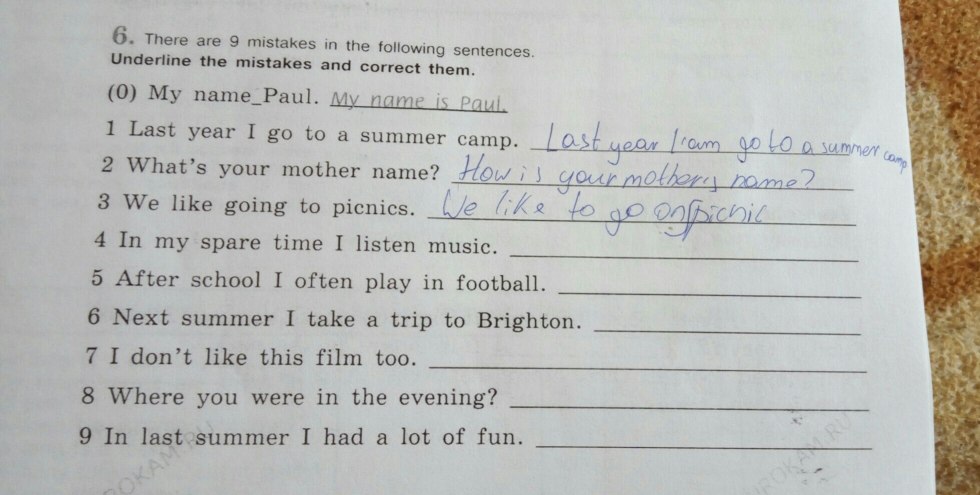 6. There are 9 mistakes in the following sentences.
Underline the mistakes and correct them.
(0) My name_Paul. My name is Paul.
1 Last year I go to a summer camp. Last year I am go to a summer camp
2 What's your mother name? How is your mother's name?
3 We like going to picnics. We like to go on picnic
4 In my spare time I listen music.
5 After school I often play in football.
6 Next summer I take a trip to Brighton.
7 I don't like this film too.
8 Where you were in the evening?
9 In last summer I had a lot of fun.
UROKAM.RU
UROKAM.RU